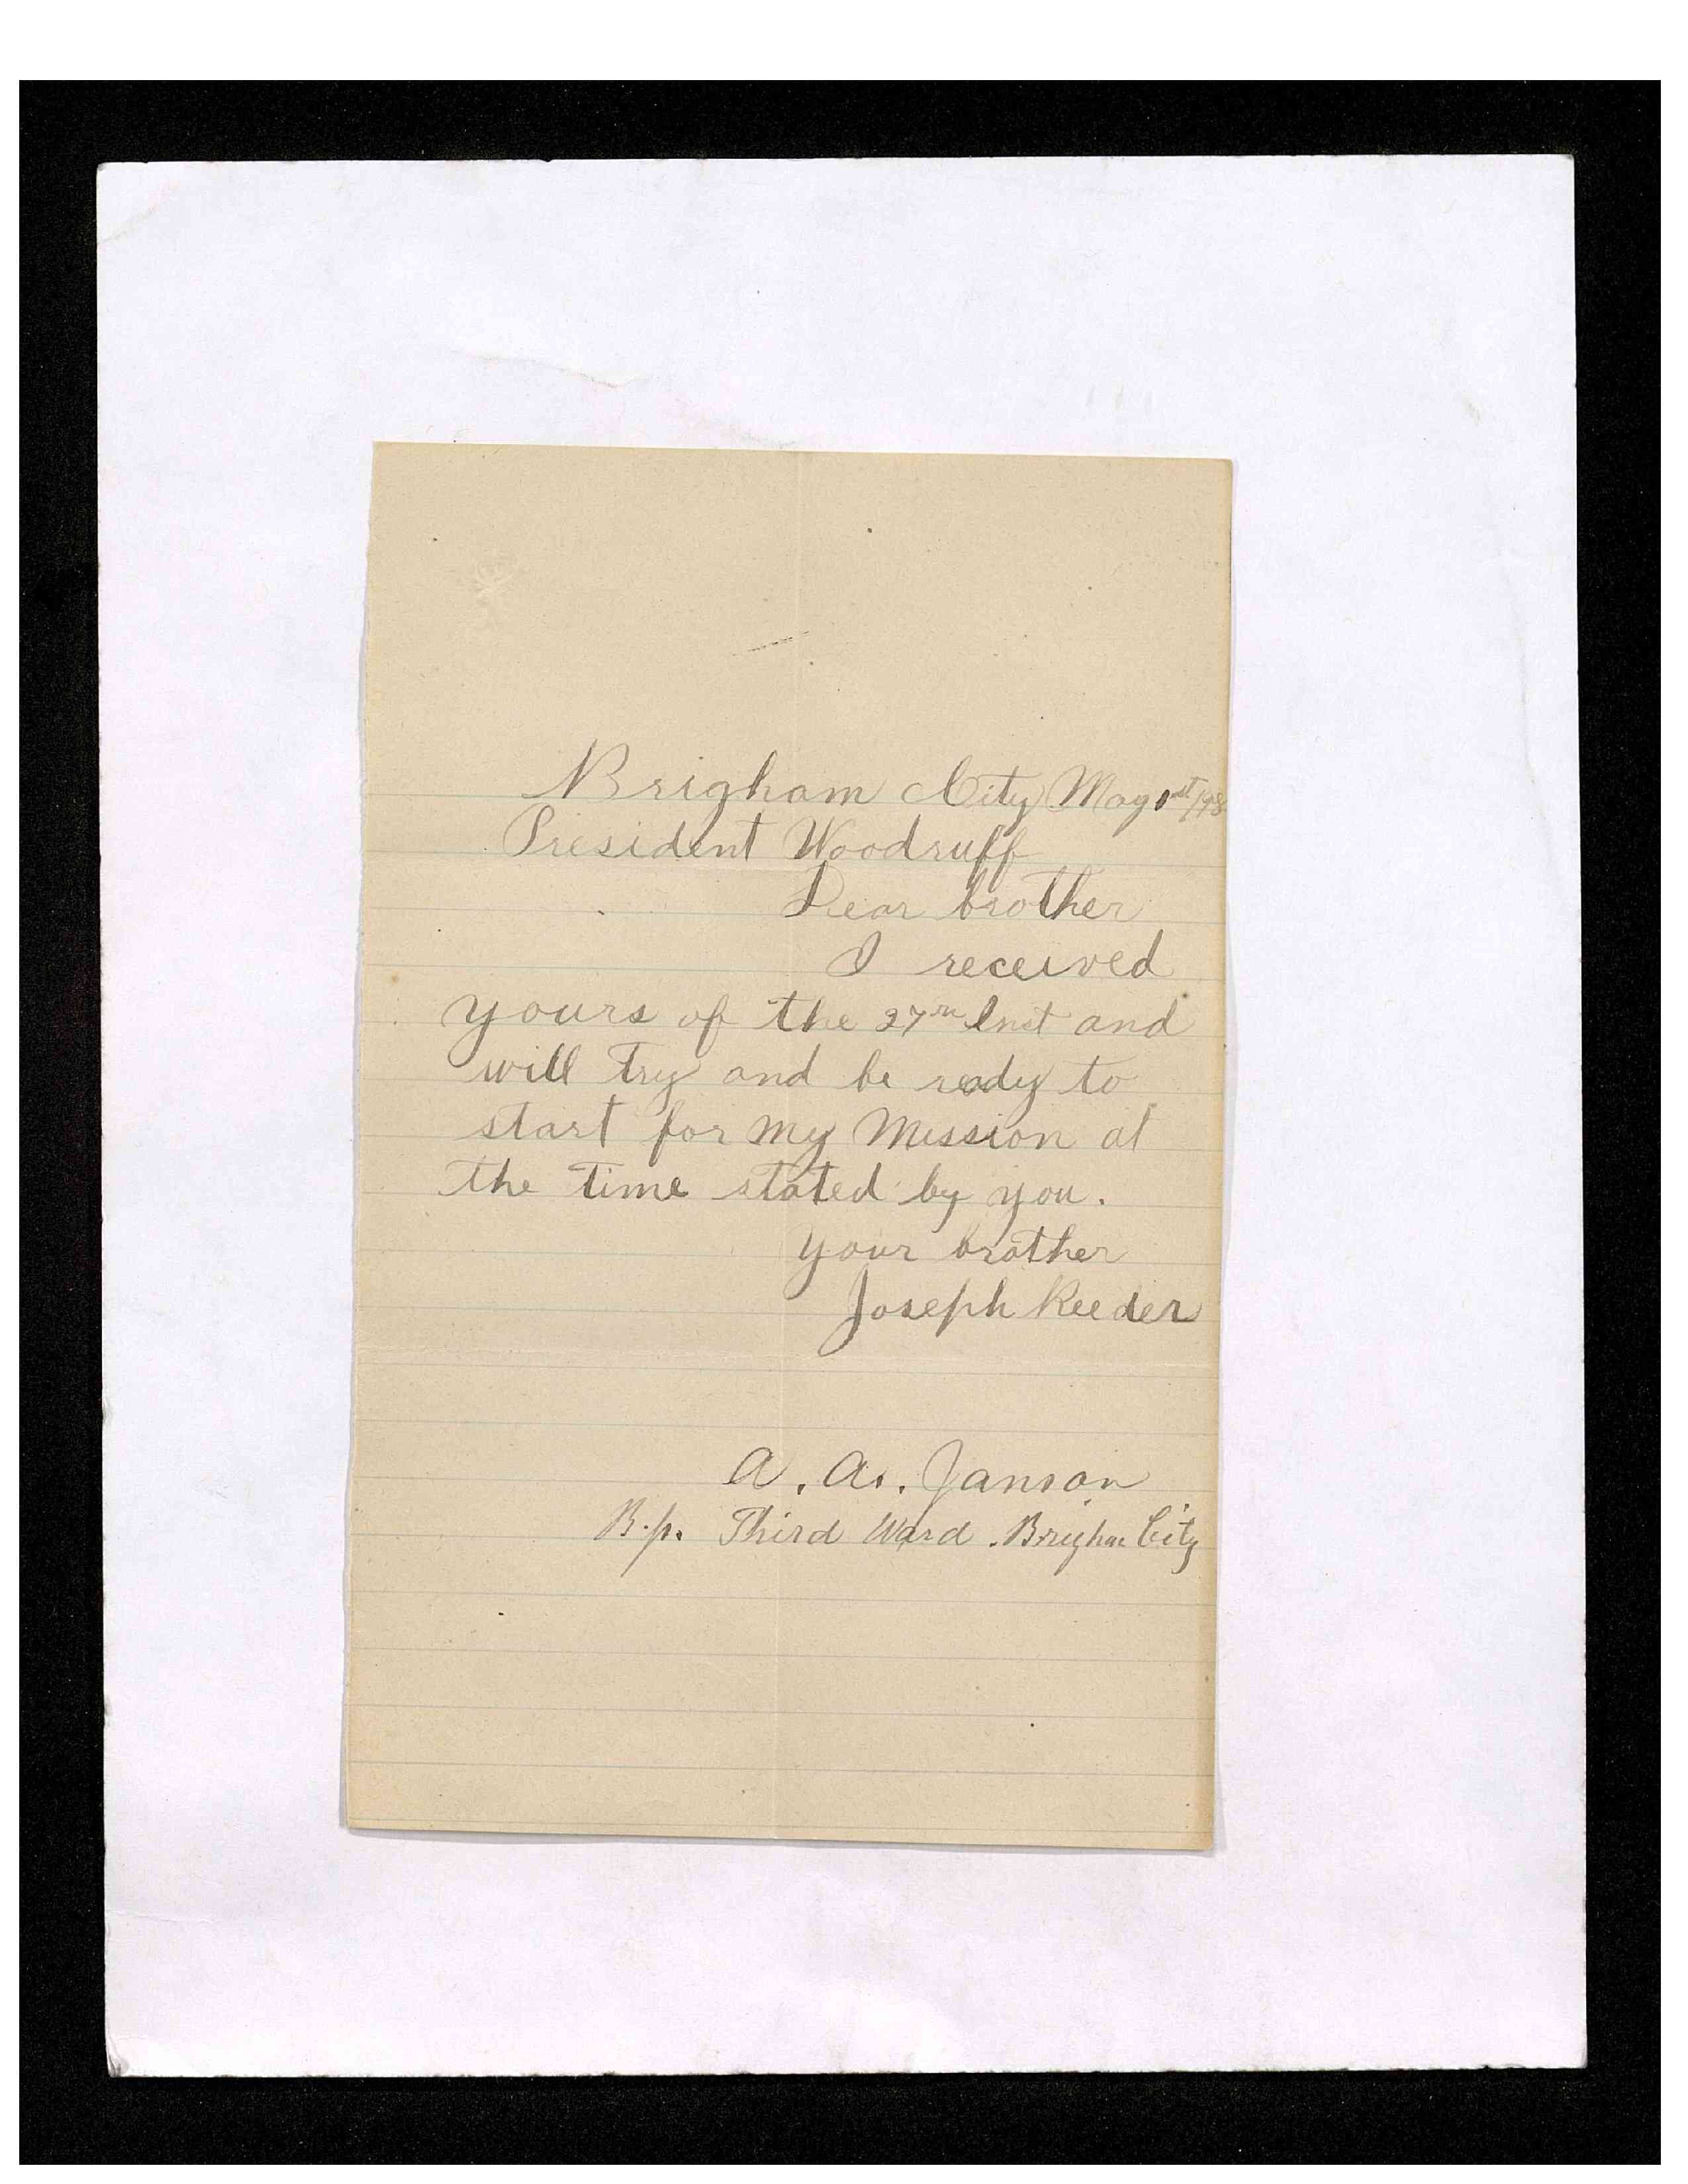 Brigham City May 1st/98
President Woodruff
Dear brother
I received
yours of the 27th Inst and
will try and be ready to
start for my Mission at
the time stated by you.
Your brother
Joseph Reeder
A. A. Janson
B.p. Third Ward. Brigham City